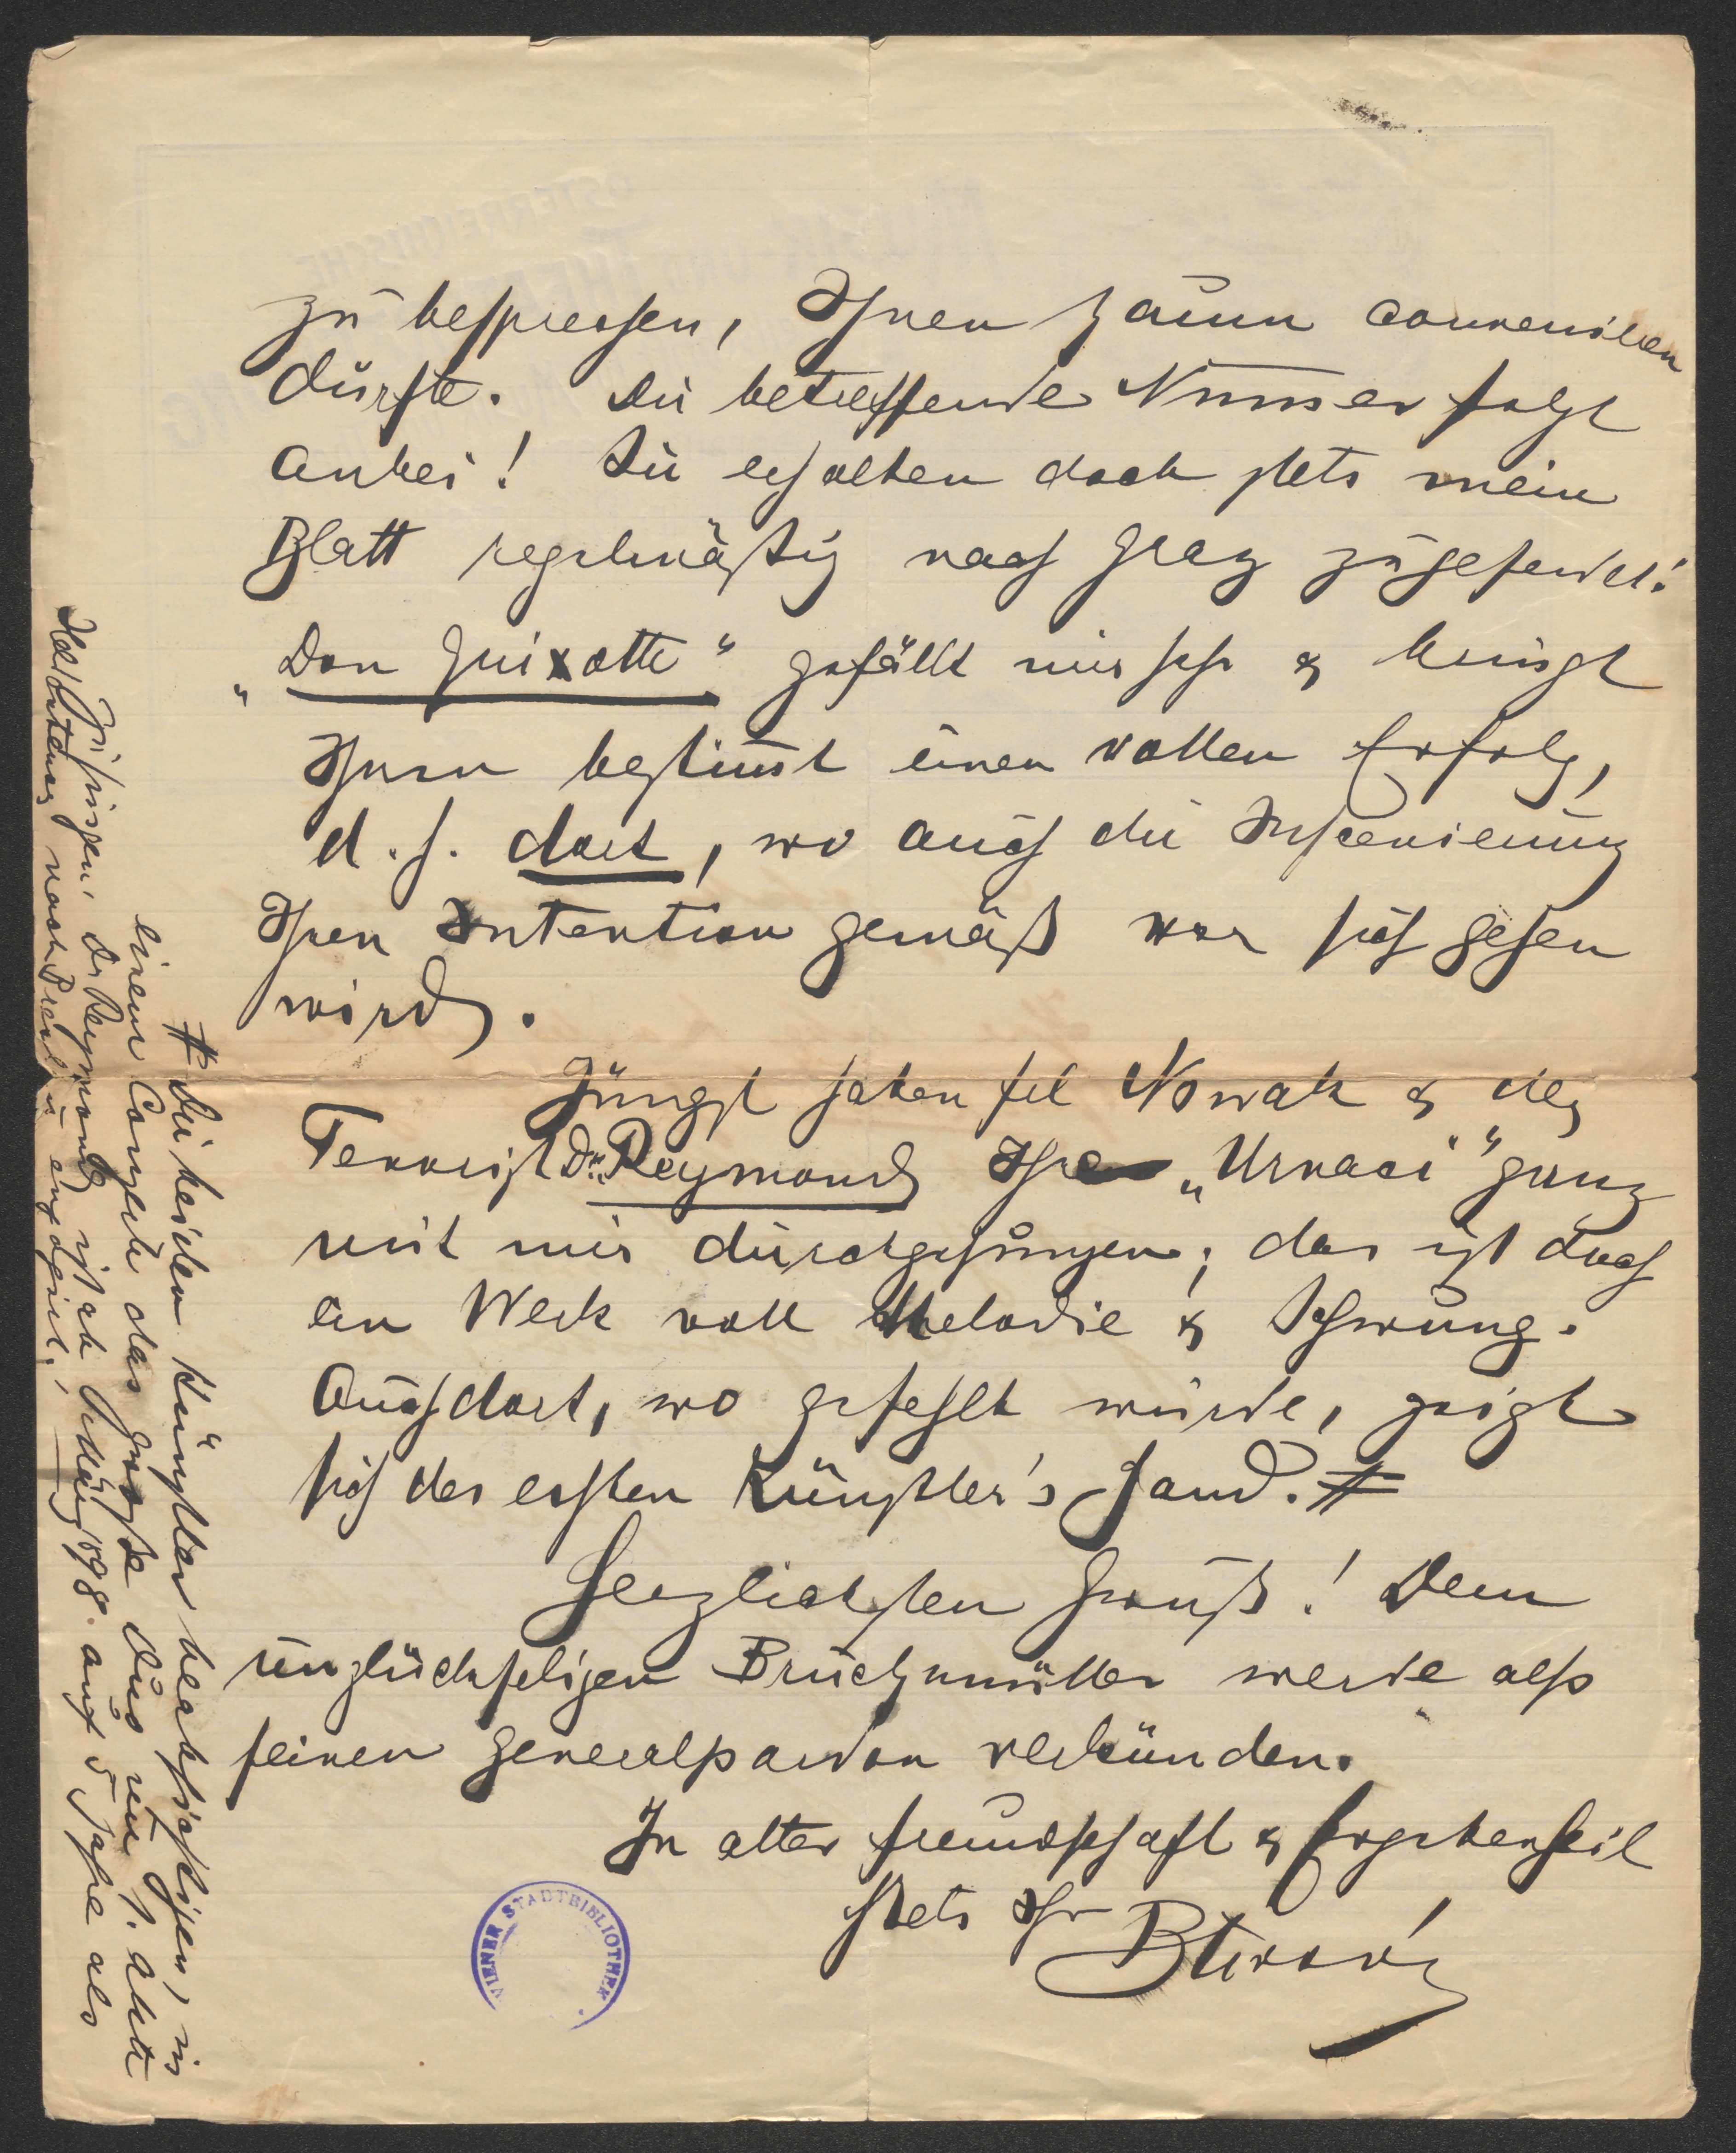 zu besprechen, Ihnen kaum convenieren
dürfte. Die betreffende Numer folgt
anbei! Sie erhalten doch stets mein
Blatt regelmäßig nach Graz zugesendet!
„Don Quixotte" gefällt mir sehr & bringt
Ihnen bestimmt einen vollen Erfolg,
d. h. dort, wo auch die Inscenierung
Ihren Intention gemäß vor sich gehen
wird.
Jüngst haben frl Nowak & der
Tenorist Dr. Reymond Ihre „Urvasi" ganz
mit mir durchgesungen; das ist doch
ein Werk voll Melodie & Schwung.
Auch dort, wo gefehlt wurde, zeigt
sich des echten Künstler's Hand. #
Herzlichsten Gruß! Dem
unglückseligen Bruckmüller werde also
seinen Generalpardon verkünden.
In alter Freundschaft & Ergebenheit
stets Ihr
# Die beiden Künstler beabsichtigen, in
einem Conzerte das große Duo im I. Akte
zu singen. Dr Reymond ist ab 1898. auf 5 Jahre als
Heldentenor nach Prag engagiert.
WIENER STADTBIBLIOTHEK
ÖSTERREICHISCHE
MUSIK- UND THEATER